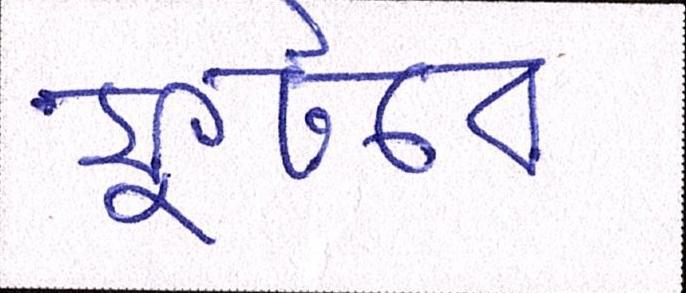 ফুটবে